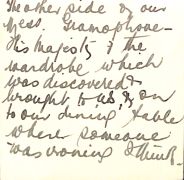 The other side of our
Mess. Gramophone –
His Majesty & the
wardrobe which
was discovered &
brought to us, & on
to our dining table
where someone
was ironing I think.